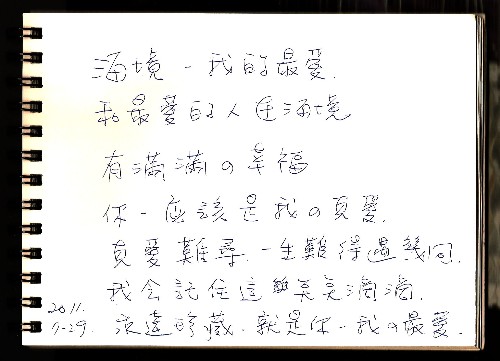 涵境－我的最愛.
和最愛的人在涵境
有滿滿の幸福
你－應該是我の真愛.
真愛難尋.一生難得遇幾回.
我会記住這美美滴滴.
永遠珍藏.就是你－我の最愛.
2011.
7-29.